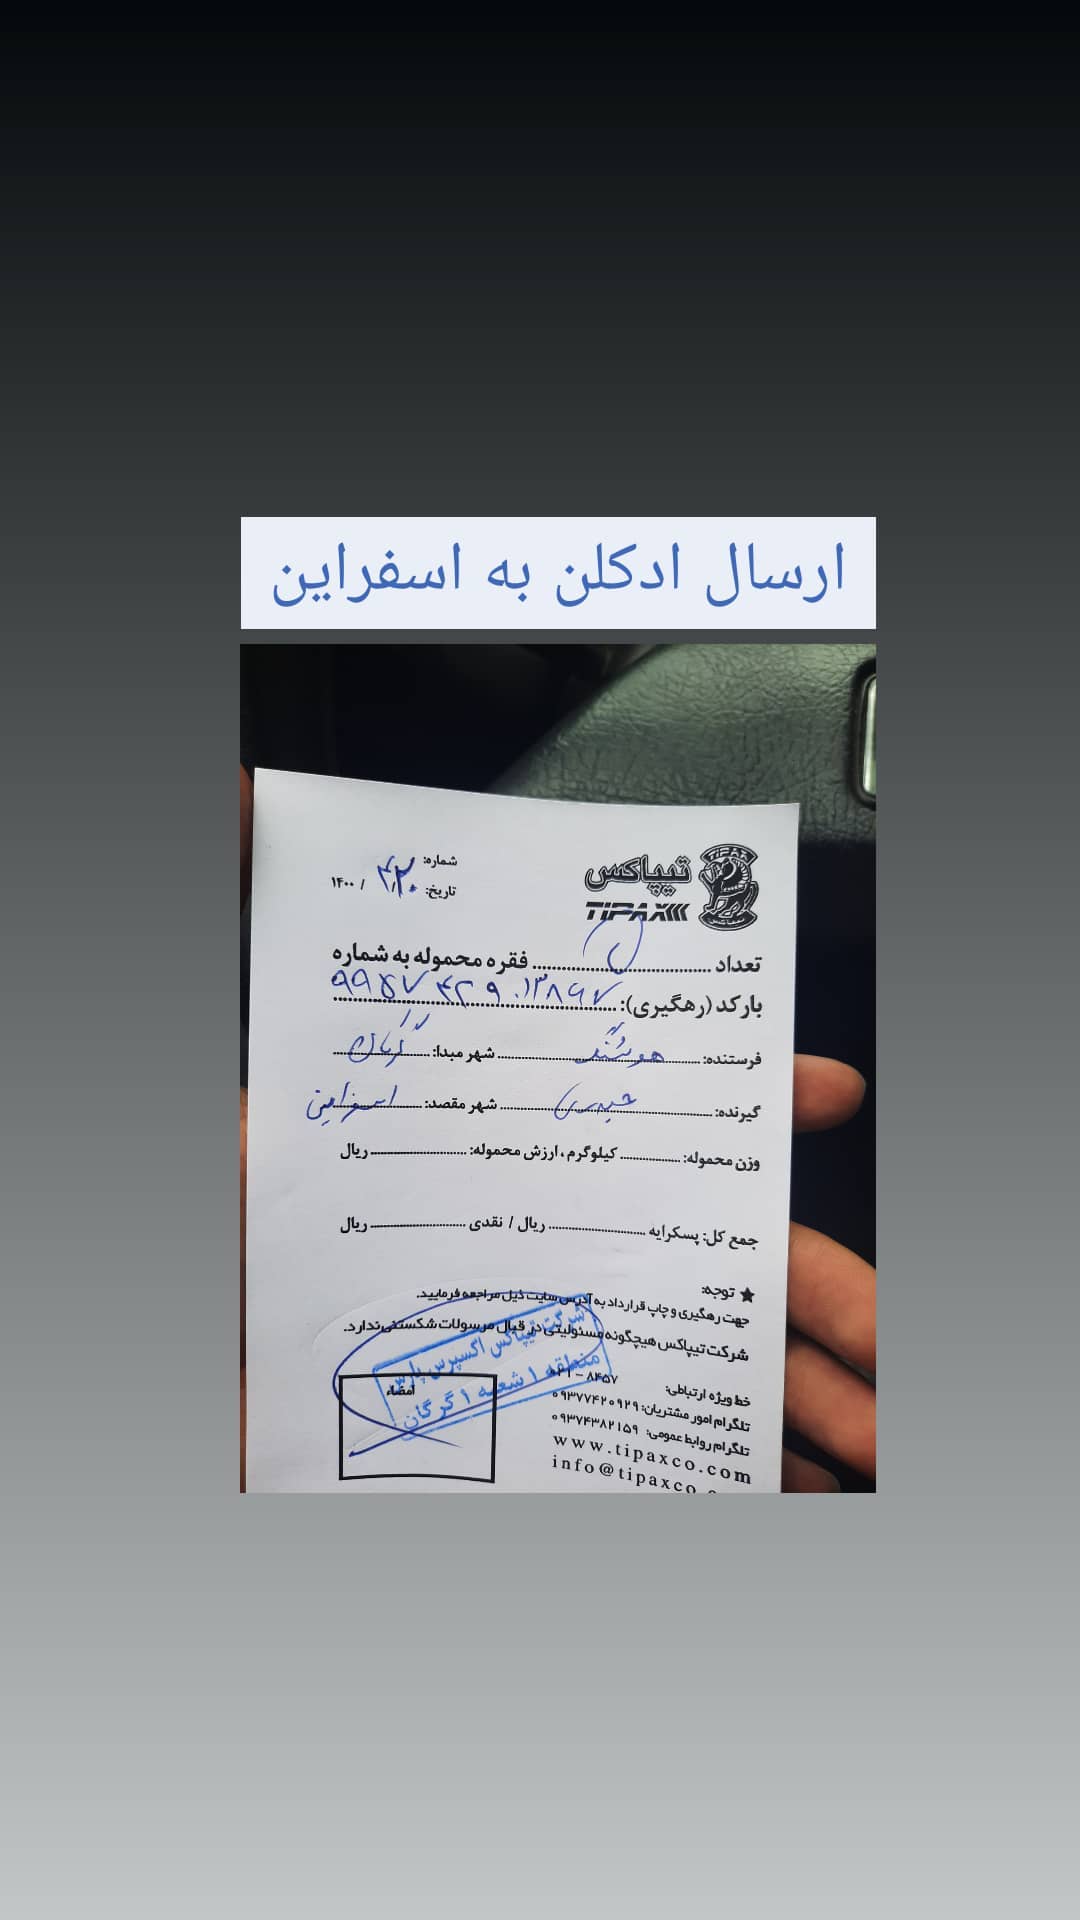 ارسال ادکلن به اسفراین
تیپاکس
TIPAX
TIPAX
تیپاکس
شماره:
تاریخ: / ۱۴۰۰
تعداد ........ فقره محموله به شماره
بارکد (رهگیری): ۹۹۵۷ ۴۲۹۰۱۳۸۶۷
فرستنده: هوشنگ شهر مبدا: گرگان
گیرنده: حیدری شهر مقصد: اسفراین
وزن محموله: ........ کیلوگرم ، ارزش محموله: ........ ریال
جمع کل: پسکرایه ........ ریال / نقدی ........ ریال
★ توجه:
جهت رهگیری و چاپ قرارداد به آدرس سایت ذیل مراجعه فرمایید.
شرکت تیپاکس هیچگونه مسئولیتی در قبال مرسولات شکستنی ندارد.
شرکت تیپاکس اکسپرس پارس
منطقه ۱ شعبه ۱ گرگان
امضاء
خط ویژه ارتباطی: ۰۲۱ – ۸۴۵۷
تلگرام امور مشتریان: ۰۹۳۷۷۴۲۰۹۲۹
تلگرام روابط عمومی: ۰۹۳۷۴۳۸۲۱۵۹
www.tipaxco.com
info@tipaxco